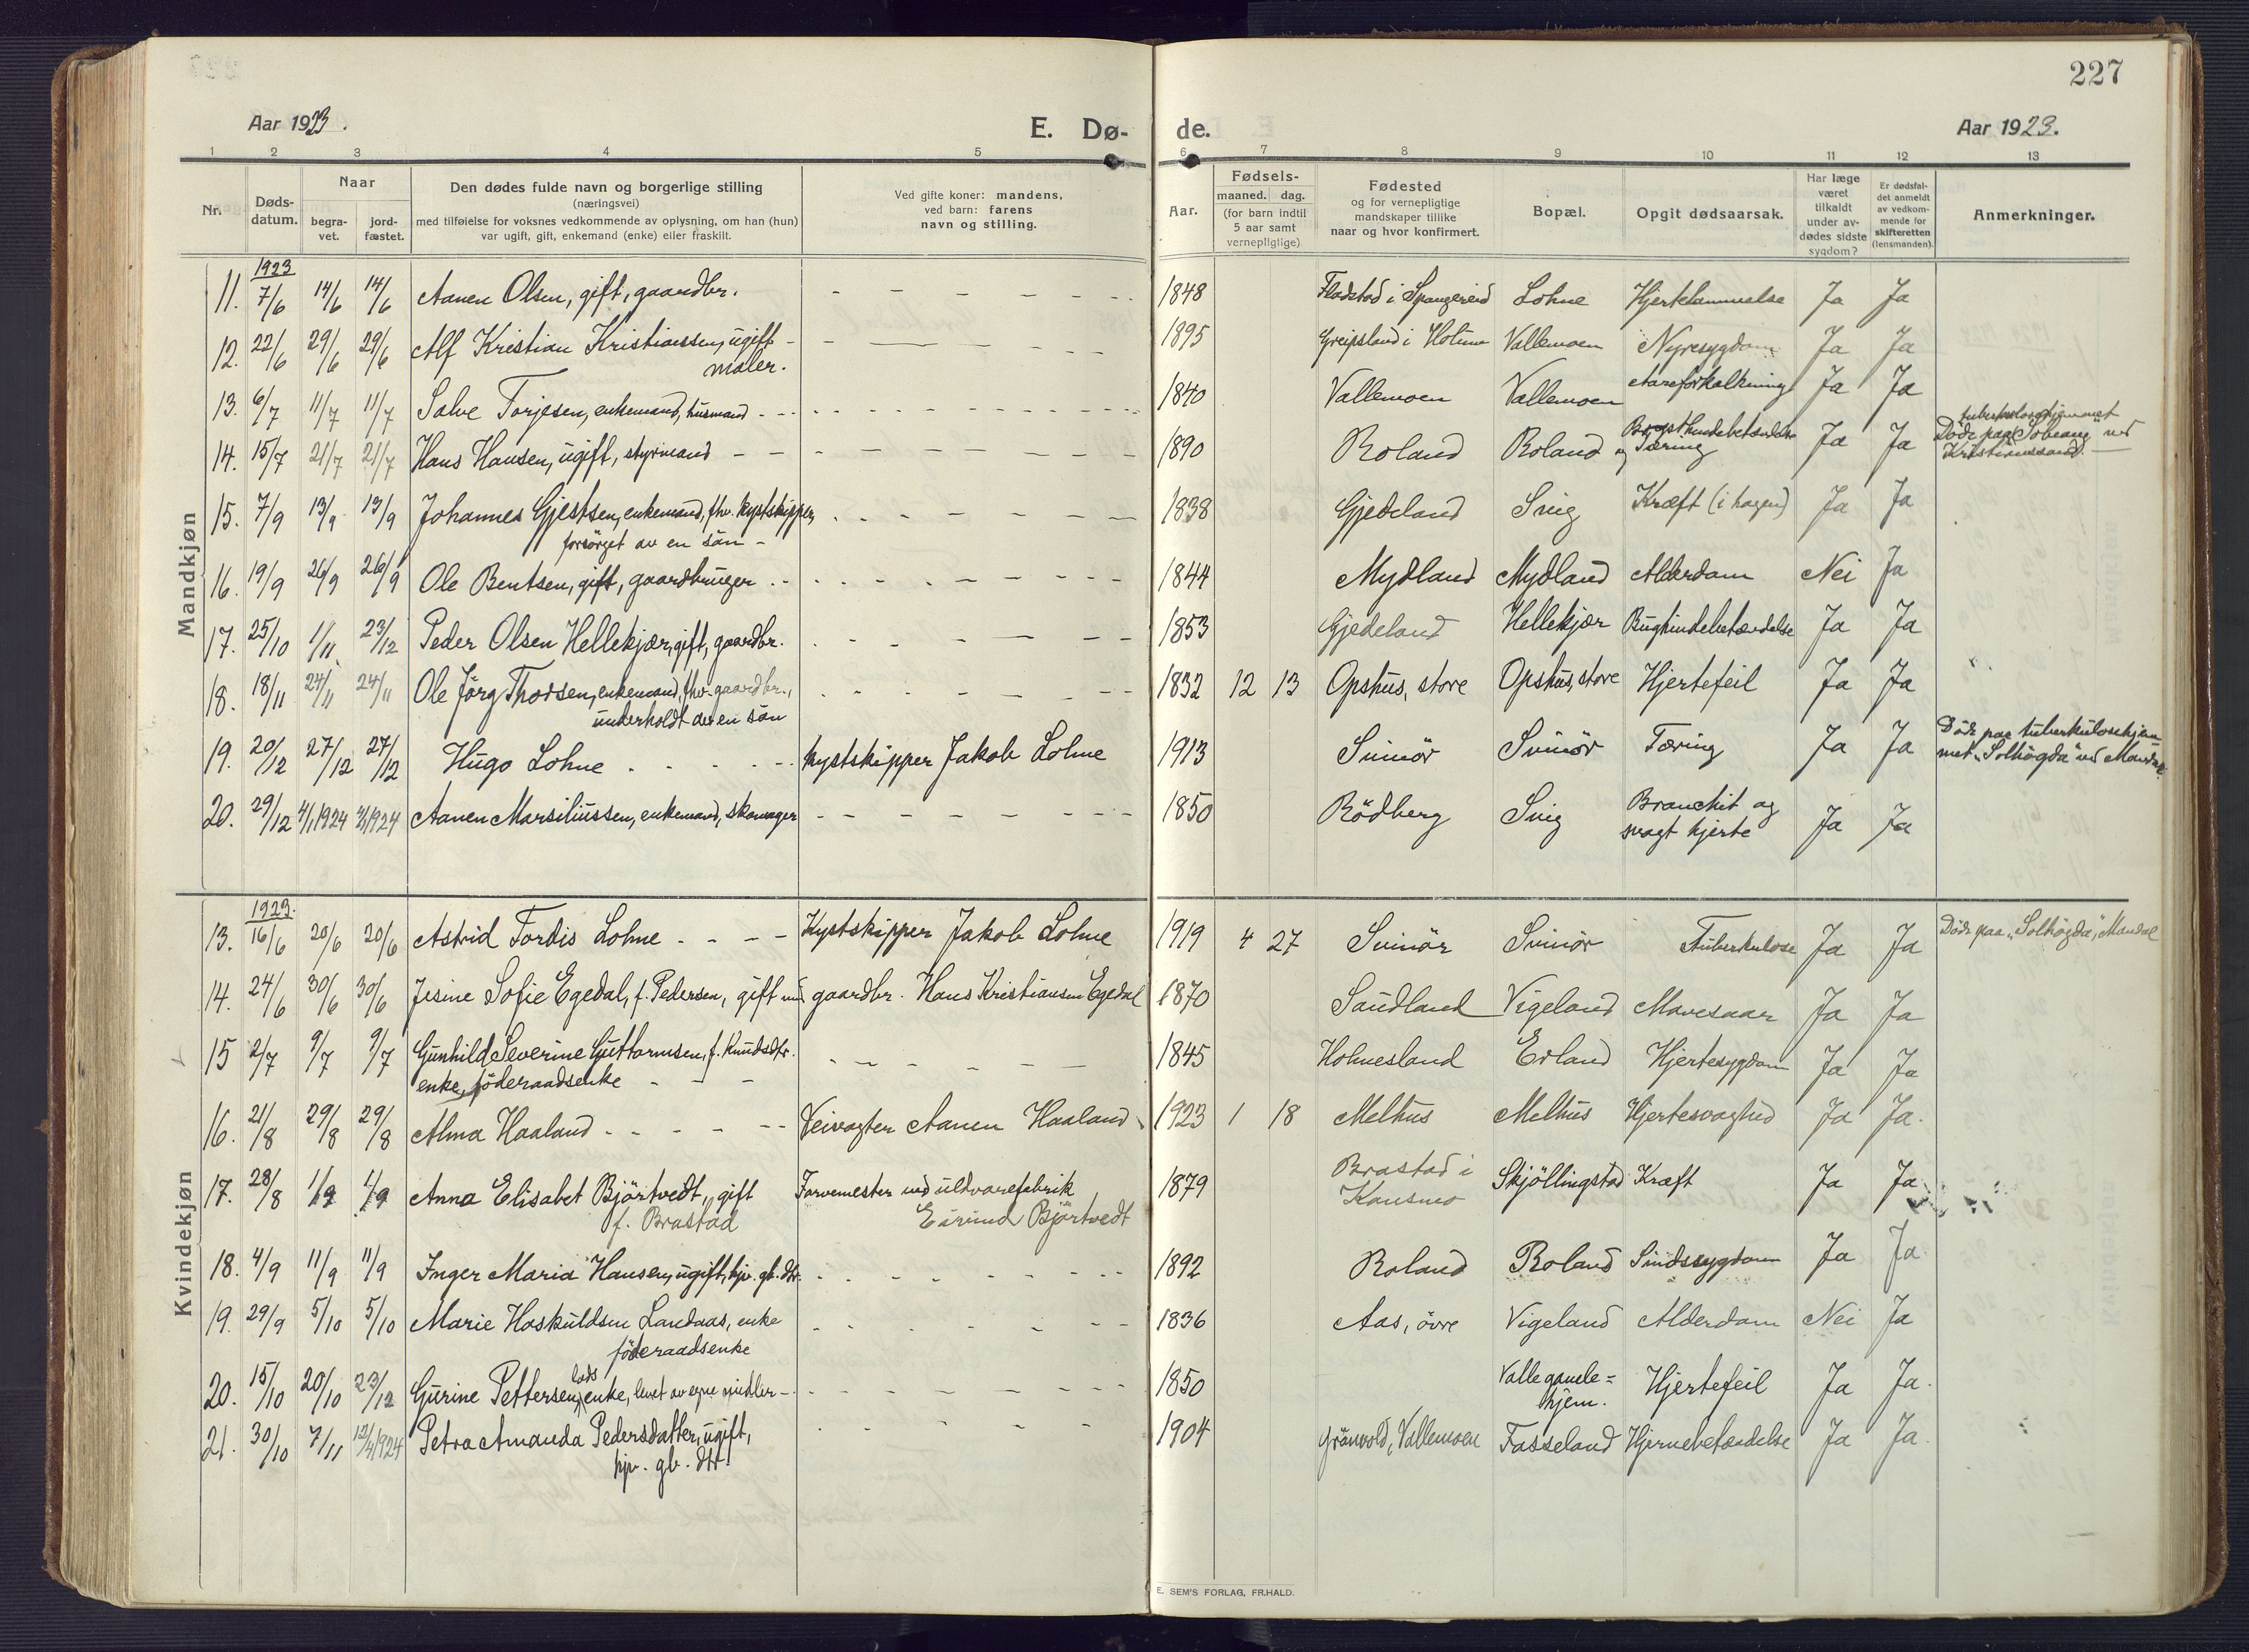 227
Aar 1923.
E. Dø-
de.
Aar 1923.
1 2 3 4 5 6 7 8 9 10 11 12 13
Nr.
Døds-
datum.
Naar
begra-
vet.
jord-
fæstet.
Den dødes fulde navn og borgerlige stilling
(næringsvei)
med tilføielse for voksnes vedkommende av oplysning, om han (hun)
var ugift, gift, enkemand (enke) eller fraskilt.
Ved gifte koner: mandens,
ved barn: farens
navn og stilling.
Aar.
Fødsels-
maaned. dag.
(for barn indtil
5 aar samt
vernepligtige)
Fødested
og for vernepligtige
mandskaper tillike
naar og hvor konfirmert.
Bopæl.
Opgit dødsaarsak.
Har læge
været
tilkaldt
under av-
dødes sidste
sygdom?
Er dødsfal-
det anmeldt
av vedkom-
mende for
skifteretten
(lensmanden).
Anmerkninger.
Mandkjøn
1923
11. 7/6 14/6 14/6 Aanen Olsen, gift, gaardbr. 1848 Fladstad i Spangereid Lohne Hjertelammelse Ja Ja
12. 22/6 29/6 29/6 Alf Kristian Kristiansen, ugift 1895 Greipsland i Holme Vallemoen Nyresygdom Ja Ja
maler.
13. 6/7 11/7 11/7 Salve Torjesen, enkemand, husmand 1840 Vallemoen Vallemoen Aareforkalkning Ja Ja
14. 15/7 21/7 21/7 Hans Hansen, ugift, styrmand 1890 Roland Roland Brysthindebetændelse og Tæring Ja Ja tuberkulosehjemmet
Døde paa ved
Kristianssand.
15. 7/9 13/9 13/9 Johannes Gjestsen, enkemand, fhv. kystskipper, 1838 Gjedeland Svig Kræft (i hagen) Ja Ja
forsörget av en sön
16. 19/9 26/9 26/9 Ole Bentsen, gift, gaardbruger 1844 Mydland Mydland Alderdom Nei Ja
17. 25/10 1/11 23/12 Peder Olsen Hellekjær, gift, gaardbr. 1853 Gjedeland Hellekjær Bughindebetændelse Ja Ja
18. 18/11 24/11 24/11 Ole Jörg. Thorsen, enkemand, fhv. gaardbr., 1832 12 13 Opshus, store Opshus, store Hjertefeil Ja Ja
underholdt av en sön
19. 20/12 27/12 27/12 Hugo Lohne kystskipper Jakob Lohne 1913 Svinör Svinör Tæring Ja Ja Döde paa tuberkulosehjem-
met "Solhögda" ved Mandal.
20. 29/12 4/1 1924 4/1 1924 Aanen Marsiliussen, enkemand, skomager 1850 Rödberg Svig Bronchit og Ja Ja
svagt hjerte
Kvindekjøn
1923.
13. 16/6 20/6 20/6 Astrid Tordis Lohne Kystskipper Jakob Lohne 1919 4 27 Svinör Svinör Tuberkulose Ja Ja Döde paa "Solhögda", Mandal
14. 24/6 30/6 30/6 Jesine Sofie Egedal, f. Pedersen, gift med gaardbr. Hans Kristiansen Egedal 1870 Saudland Vigeland Mavesaar Ja Ja
15 2/7 9/7 9/7 Gunhild Severine Guttormsen, f. Knudsdtr. 1845 Holmesland Erland Hjertesygdom Ja Ja
enke, föderaadsenke
16. 21/8 29/8 29/8 Alma Haaland Veivogter Aanen Haaland 1923 1 18 Melhus Melhus Hjertesvaghed Ja Ja.
17. 28/8 1/9 1/9 Anna Elisabet Björtvedt, gift Farvemester ved uldvarefabrik 1879 Brastad i Skjöllingstad Kræft Ja Ja
f. Brastad Eivind Björtvedt Konsmo
18. 4/9 11/9 11/9 Inger Maria Hansen, ugift, hjv. gb. dtr. 1892 Roland Roland Sindssygdom Ja Ja
19. 29/9 5/10 5/10 Marie Haskuldsen Landaas, enke 1836 Aas, övre Vigeland Alderdom Nei Ja
föderaadsenke
20. 15/10 20/10 23/12 Gurine Pettersen, lods enke, levet av egne midler 1850 Valle gamle= Hjertefeil Ja Ja.
hjem.
21. 30/10 7/11 1924 Petra Amanda Pedersdatter, ugift, 1904 Grönvold, Vallemoen Fasseland Hjernebetændelse Ja Ja.
hjv. gb. dtr.
E. SEM'S FORLAG, FR.HALD.